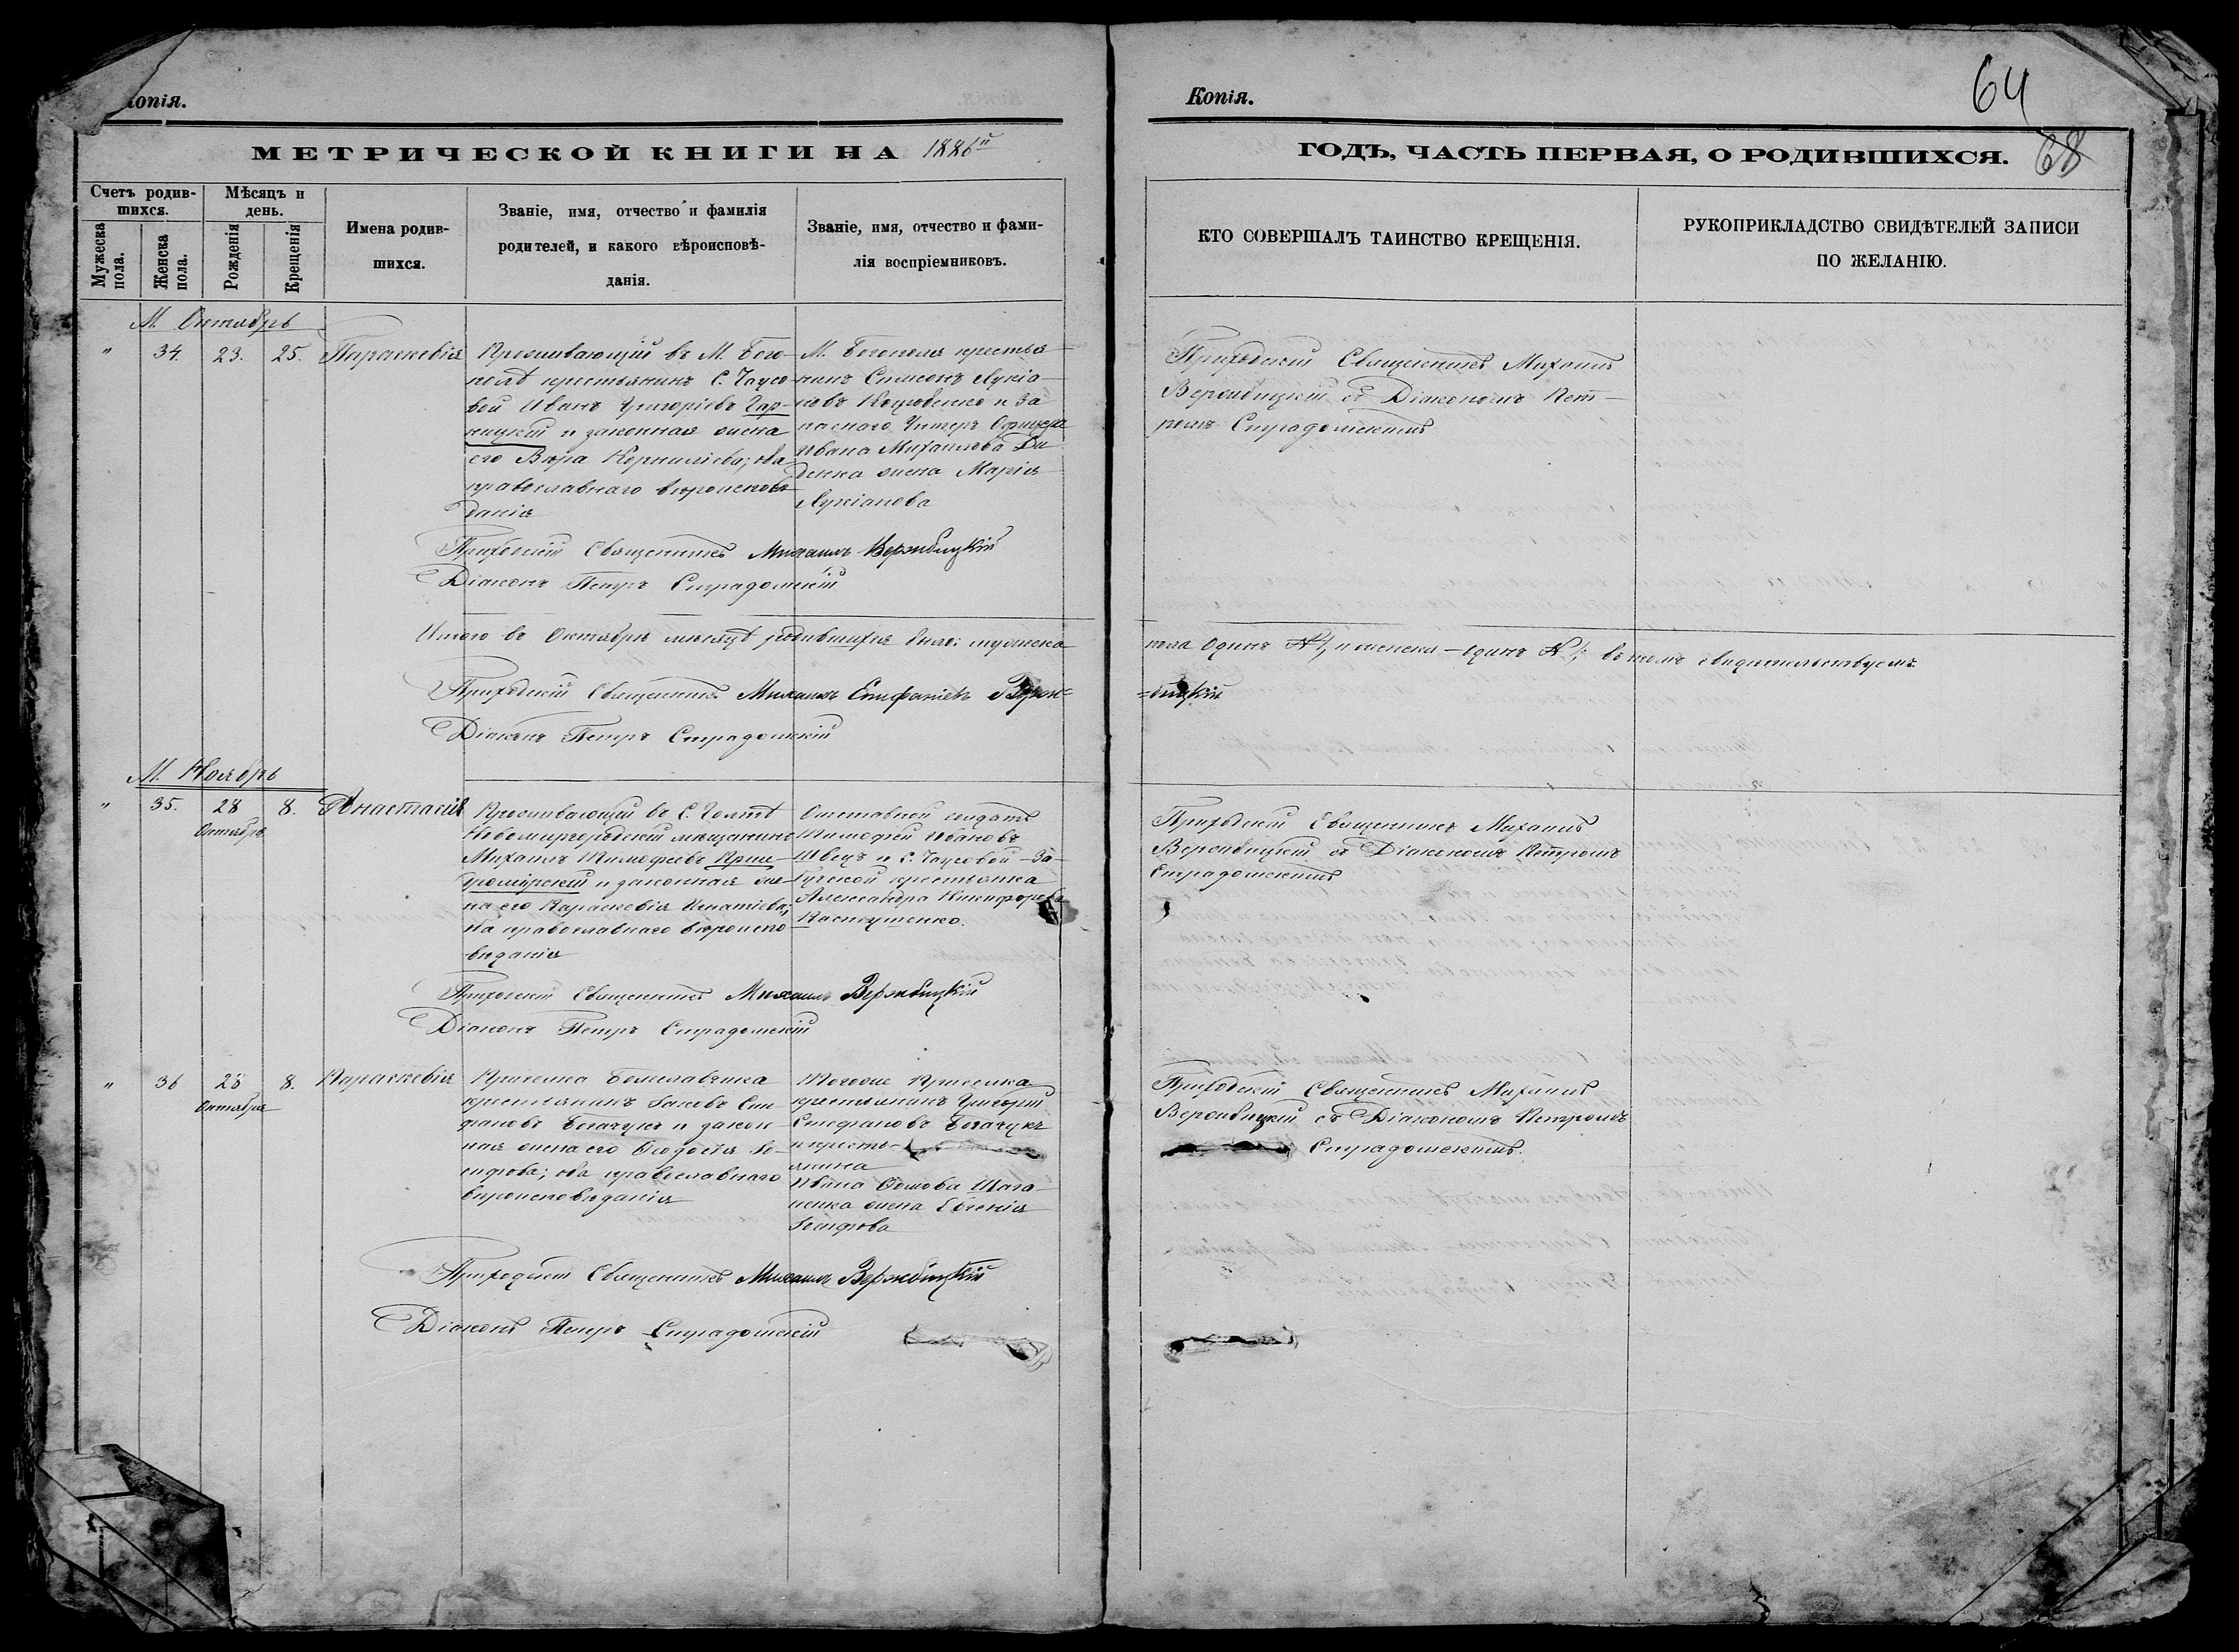 Копія.
МЕТРИЧЕСКОЙ КНИГИ НА 1886й
Счетъ родив-
шихся.
Мужеска
пола.
Женска
пола.
Мѣсяцъ и
день.
Рожденія
Крещенія
Имена родив-
шихся.
Званіе, имя, отчество и фамилія
родителей, и какого вѣроисповѣ-
данія.
Званіе, имя, отчество и фами-
лія воспріемниковъ.
М. Октябрь
" 34. 23. 25. Параскевія
Проживающій въ М. Бого-
полѣ крестьянинъ С. Чаусо
вой Иванъ Григоріевъ Чар-
ницкій и законная жена
его Вѣра Корниліева; оба
православнаго вѣроисповѣ
данія
М. Богополя крестья
нинъ Симеонъ Лукіа-
новъ Коцюбенко и За
паснаго Унтеръ Офицера
Ивана Михаилова Ди
денка жена Марія
Лукіанова
Приходскій Священникъ Михаилъ Вержбицкій
Діаконъ Петръ Страдомскій
Итого въ Октябрѣ мѣсяцѣ родившихся было: мужеска
Приходскій Священникъ Михаилъ Епифаніевъ Верж=
Діаконъ Петръ Страдомскій
М. Ноябрь
" 35. 28 8. Анастасія
Октября
Проживающій въ С. Голтѣ
Новомиргородскій мѣщанинъ
Михаилъ Тимофеевъ
и законная же-
на его Параскевія Игнатіева;
оба православнаго вѣроиспо
вѣданія
Отставной солдатъ
Тимофей Ивановъ
Швецъ и С. Чаусовой - За-
бугской крестьянка
Александра Никифорова
Пастушенко.
Приходскій Священникъ Михаилъ Вержбицкій
Діаконъ Петръ Страдомскій
" 36 28 8. Параскевія
Октября
Приселка Болеславчика
крестьянинъ Іаковъ Сте
фановъ Богачукъ и закон
ная жена его Ѳеодосія Іо-
сифова; оба православнаго
вѣроисповѣданія
Тогоже Приселка
крестьянинъ Григорій
Стефановъ Богачукъ
и кресть-
янина
Ивана Ѳомова
жена Евгенія
Іосифова
Приходскій Священникъ Михаилъ Вержбицкій
Діаконъ Петръ Страдомскій
Копія.
64
68
ГОДЪ, ЧАСТЬ ПЕРВАЯ, О РОДИВШИХСЯ.
КТО СОВЕРШАЛЪ ТАИНСТВО КРЕЩЕНІЯ.
РУКОПРИКЛАДСТВО СВИДѢТЕЛЕЙ ЗАПИСИ
ПО ЖЕЛАНІЮ.
Приходскій Священникъ Михаилъ
Вержбицкій съ Діакономъ Пет-
ромъ Страдомскимъ
пола одинъ № 1, и женска - одинъ № 1; въ томъ свидѣтельствуемъ
=бицкій
Приходскій Священникъ Михаилъ
Вержбицкій съ Діакономъ Петромъ
Страдомскимъ
Приходскій Священникъ Михаилъ
Вержбицкій съ Діакономъ Петромъ
Страдомскимъ.